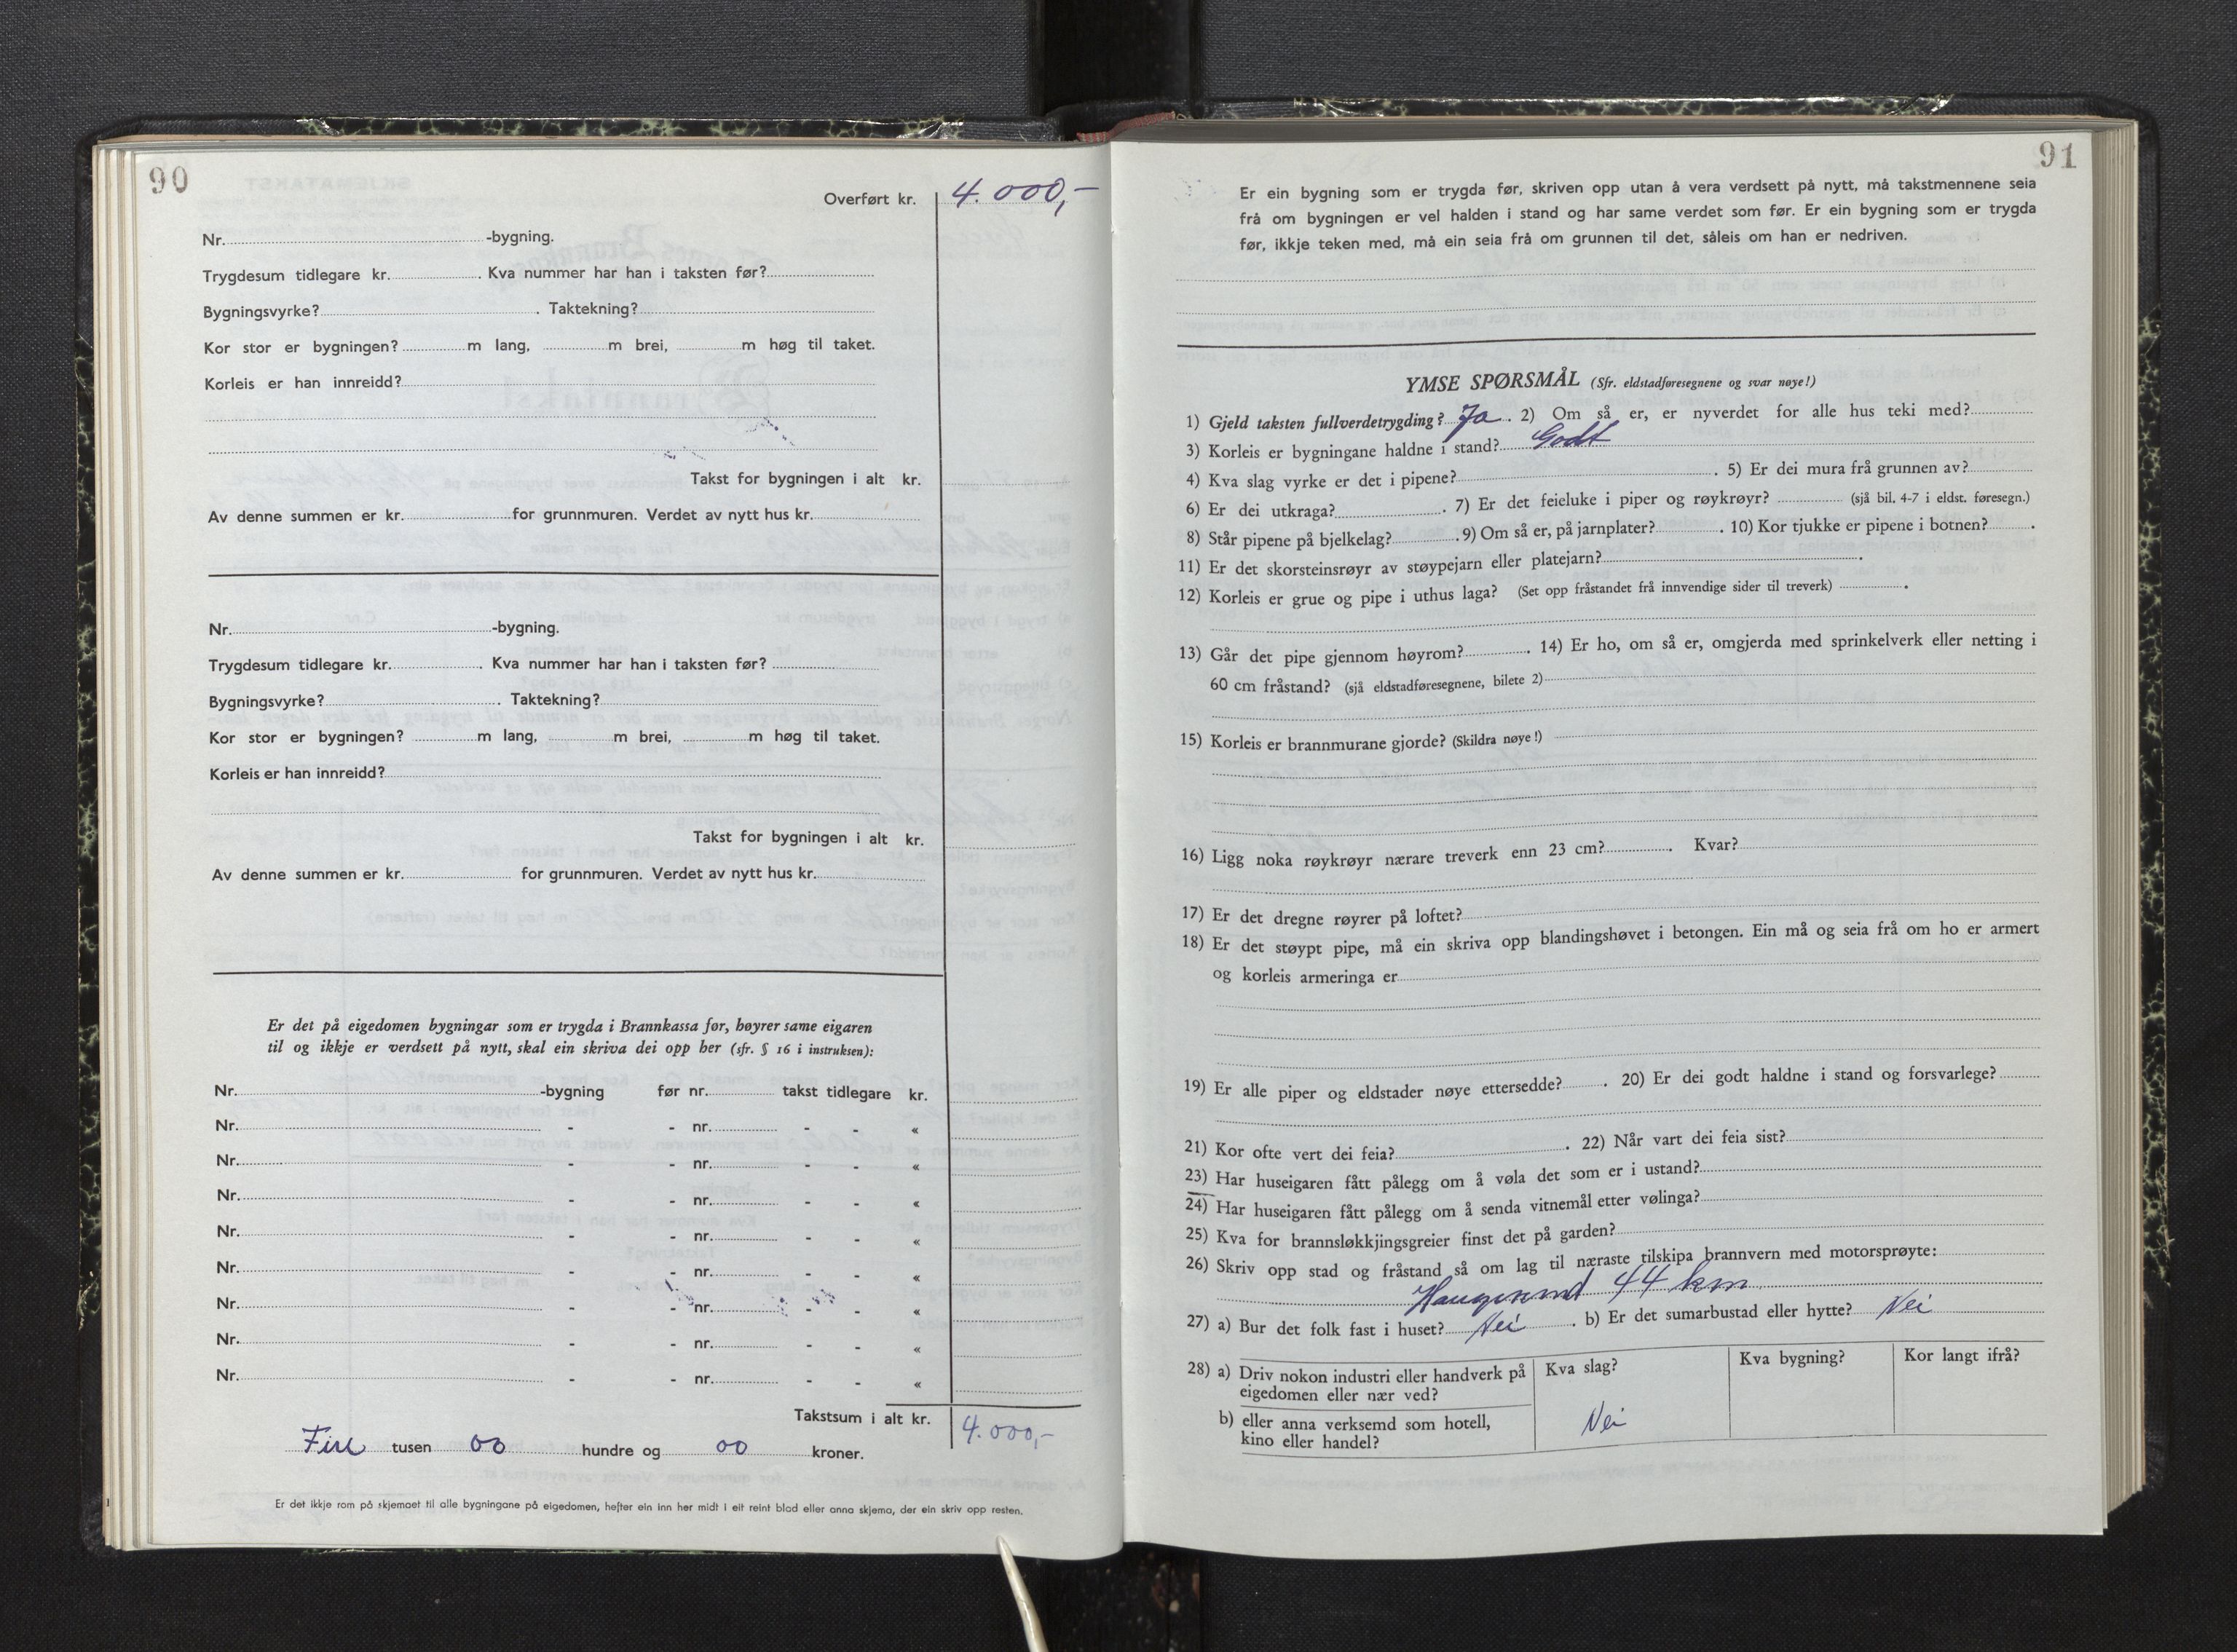 90
Overført kr. 4.000,-
Nr. -bygning.
Trygdesum tidlegare kr. . Kva nummer har han i taksten før?
Bygningsvyrke? . Taktekning?
Kor stor er bygningen? m lang, m brei, m høg til taket.
Korleis er han innreidd?
Takst for bygningen i alt kr.
Av denne summen er kr. for grunnmuren. Verdet av nytt hus kr.
Nr. -bygning.
Trygdesum tidlegare kr. . Kva nummer har han i taksten før?
Bygningsvyrke? . Taktekning?
Kor stor er bygningen? m lang, m brei, m høg til taket.
Korleis er han innreidd?
Takst for bygningen i alt kr.
Av denne summen er kr. for grunnmuren. Verdet av nytt hus kr.
Er det på eigedomen bygningar som er trygda i Brannkassa før, høyrer same eigaren
til og ikkje er verdsett på nytt, skal ein skriva dei opp her (sfr. § 16 i instruksen):
Nr. -bygning før nr. takst tidlegare kr.
Nr. - - nr. - - «
Nr. - - nr. - - «
Nr. - - nr. - - «
Nr. - - nr. - - «
Nr. - - nr. - - «
Nr. - - nr. - - «
Nr. - - nr. - - «
Nr. - - nr. - - «
Takstsum i alt kr. 4.000,-
Fire tusen 00 hundre og 00 kroner.
Er det ikkje rom på skjemaet til alle bygningane på eigedomen, hefter ein inn her midt i eit reint blad eller anna skjema, der ein skriv opp resten.
91
Er ein bygning som er trygda før, skriven opp utan å vera verdsett på nytt, må takstmennene seia
frå om bygningen er vel halden i stand og har same verdet som før. Er ein bygning som er trygda
før, ikkje teken med, må ein seia frå om grunnen til det, såleis om han er nedriven.
YMSE SPØRSMÅL (Sfr. eldstadføresegnene og svar nøye!)
1) Gjeld taksten fullverdetrygding? Ja . 2) Om så er, er nyverdet for alle hus teki med?
3) Korleis er bygningane haldne i stand? Godt
4) Kva slag vyrke er det i pipene? . 5) Er dei mura frå grunnen av?
6) Er dei utkraga? . 7) Er det feieluke i piper og røykrøyr? (sjå bil. 4-7 i eldst. føresegn.)
8) Står pipene på bjelkelag? . 9) Om så er, på jarnplater? . 10) Kor tjukke er pipene i botnen? .
11) Er det skorsteinsrøyr av støypejarn eller platejarn? .
12) Korleis er grue og pipe i uthus laga? (Set opp fråstandet frå innvendige sider til treverk) .
13) Går det pipe gjennom høyrom? . 14) Er ho, om så er, omgjerda med sprinkelverk eller netting i
60 cm fråstand? (sjå eldstadføresegnene, bilete 2)
15) Korleis er brannmurane gjorde? (Skildra nøye!)
16) Ligg noka røykrøyr nærare treverk enn 23 cm? . Kvar?
17) Er det dregne røyrer på loftet?
18) Er det støypt pipe, må ein skriva opp blandingshøvet i betongen. Ein må og seia frå om ho er armert
og korleis armeringa er
19) Er alle piper og eldstader nøye ettersedde? . 20) Er dei godt haldne i stand og forsvarlege?
21) Kor ofte vert dei feia? . 22) Når vart dei feia sist?
23) Har huseigaren fått pålegg om å vøla det som er i ustand?
24) Har huseigaren fått pålegg om å senda vitnemål etter vølinga?
25) Kva for brannsløkkjingsgreier finst det på garden?
26) Skriv opp stad og fråstand så om lag til næraste tilskipa brannvern med motorsprøyte:
Haugesund 44 km
27) a) Bur det folk fast i huset? Nei . b) Er det sumarbustad eller hytte? Nei
28) a) Driv nokon industri eller handverk på Kva slag? Kva bygning? Kor langt ifrå?
eigedomen eller nær ved?
b) eller anna verksemd som hotell, Nei
kino eller handel?